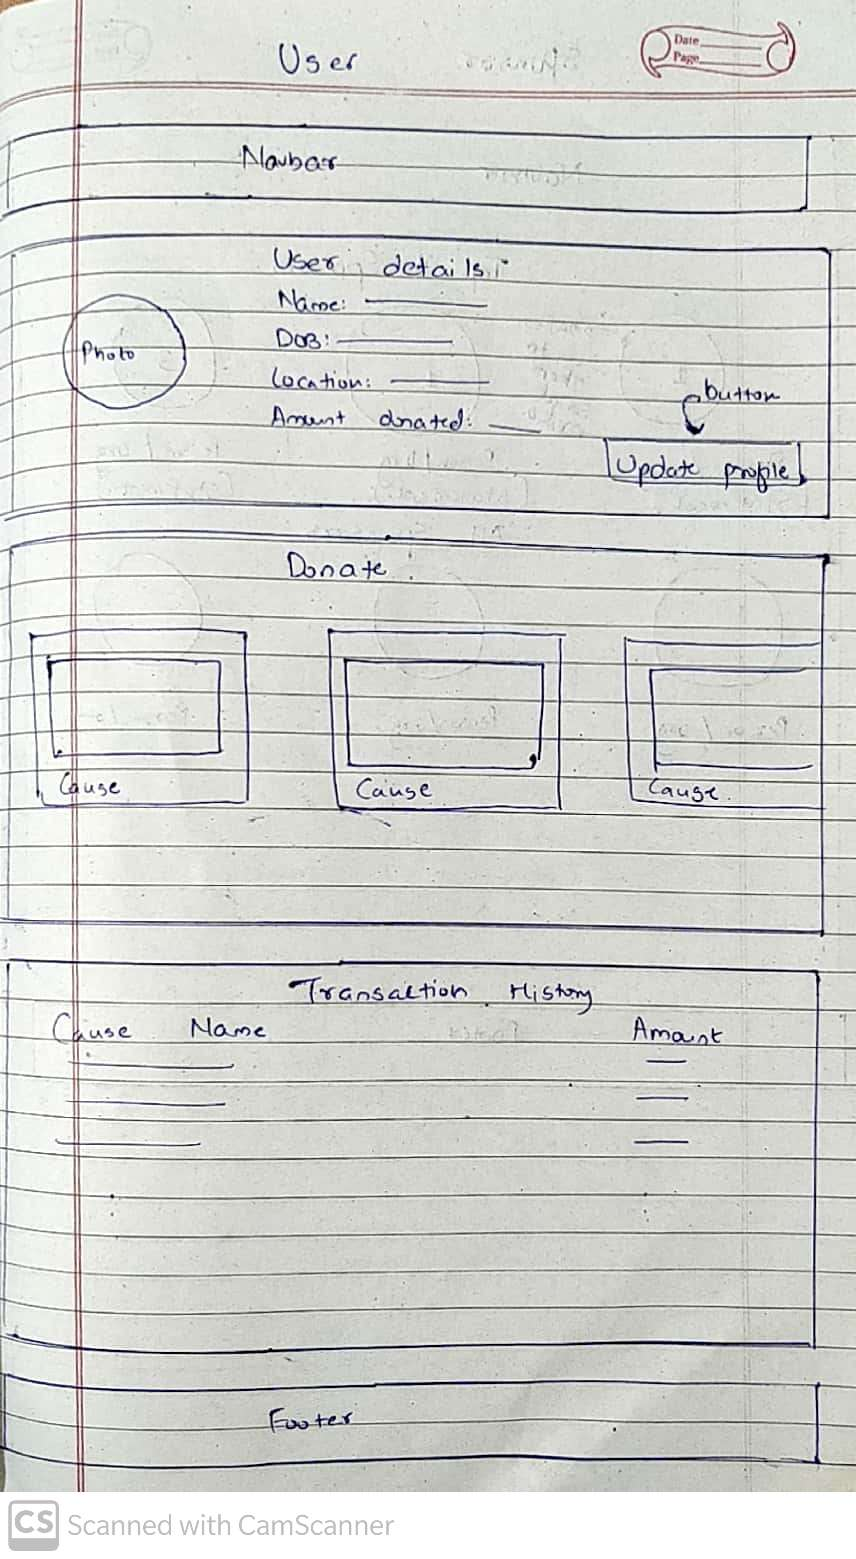 User
Date
Page
Navbar
User details:
Name:
Photo
DOB:
Location:
button
Amount donated:
Update profile
Donate:
Cause
Cause
Cause.
Transaction History
Cause Name Amount
Footer
CS Scanned with CamScanner